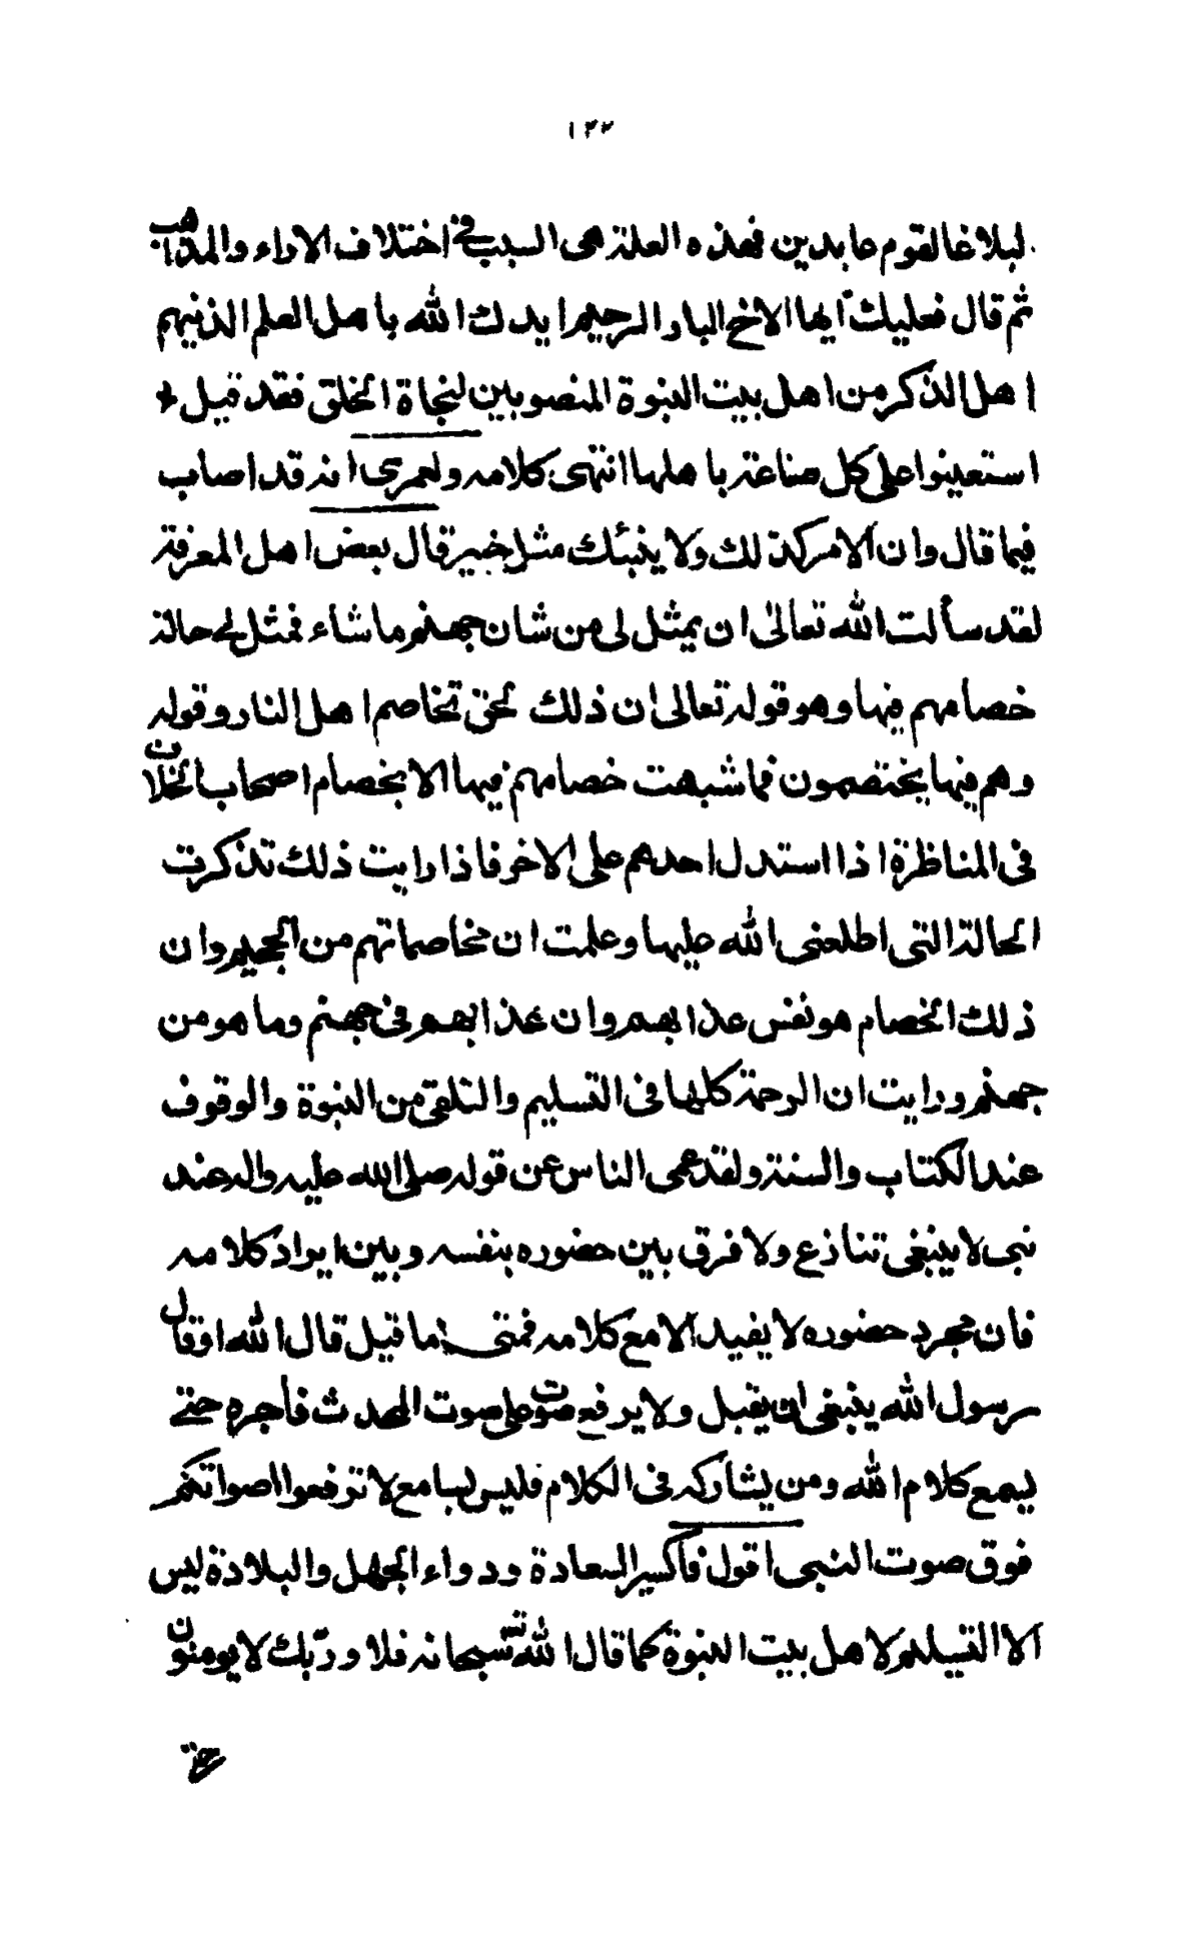 ١٤٢
لبلاغا لقوم عابدين فهذه العلة هى السبب فى اختلاف الاراء والمذاهب
ثم قال فعليك ايها الاخ البار الرحيم ايدك الله باهل العلم الذينهم
اهل الذكر من اهل بيت النبوة المنصوبين لنجاة الخلق فقد قيل
استعينوا على كل صناعة باهلها انتهى كلامه ولعمرى انه قد اصاب
فيما قال وان الامر كذلك ولا ينبئك مثل خبير قال بعض اهل المعرفة
لقد سألت الله تعالى ان يمثل لى من شان جهنم ما شاء فمثل لى حالة
خصامهم فيها وهو قوله تعالى ان ذلك لحق تخاصم اهل النار وقوله
وهم فيها يختصمون فما شبهت خصامهم فيها الا بخصام اصحاب الخلاف
فى المناظرة اذا استدل احدهم على الاخر فاذا رايت ذلك تذكرت
الحالة التى اطلعنى الله عليها وعلمت ان مخاصماتهم من الجحيم وان
ذلك الخصام هو نفس عذابهم وان عذابهم فى جهنم وما هو من
جهنم ورايت ان الرحمة كلها فى التسليم والتلقى من النبوة والوقوف
عند الكتاب والسنة ولقد عمى الناس عن قوله صلى الله عليه واله عند
نبى لا ينبغى تنازع ولا فرق بين حضوره بنفسه وبين ايراد كلامه
فان مجرد حضوره لا يفيد الا مع كلامه فمتى ما قيل قال الله او قال
رسول الله ينبغى ان يقبل ولا يرفع صوت على صوت المحدث فأجره حتى
يسمع كلام الله ومن يشاركه فى الكلام فليس بسامع لا ترفعوا اصواتكم
فوق صوت النبى اقول فاكسير السعادة ودواء الجهل والبلادة ليس
الا التسليم لاهل بيت النبوة كما قال الله سبحانه فلا وربك لا يومنون
حتى